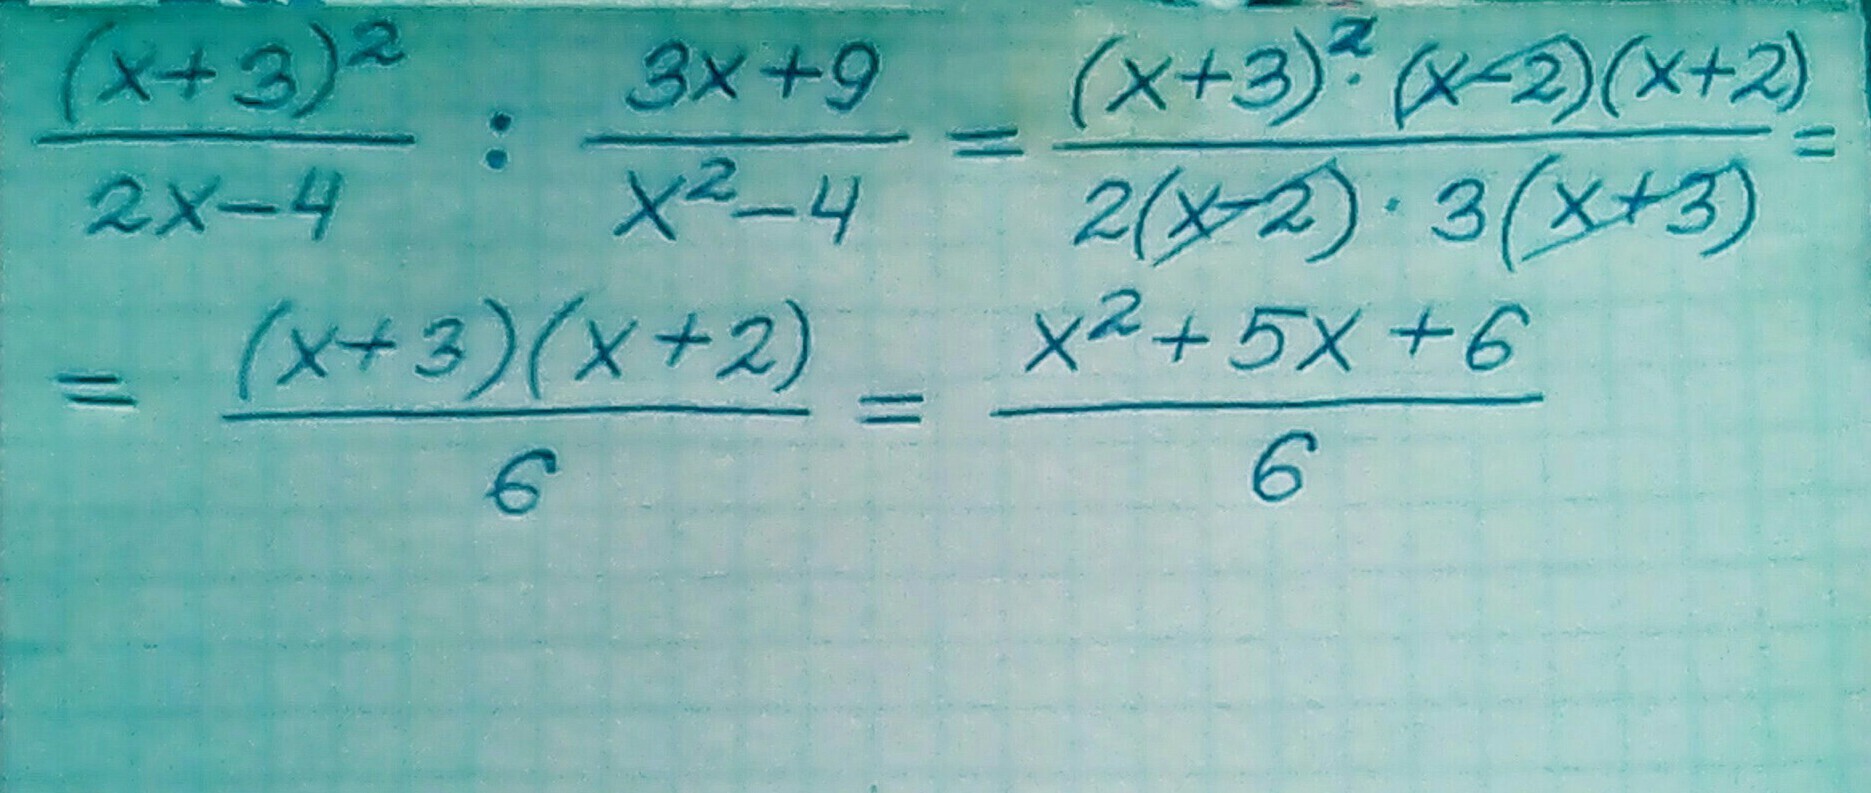 (x+3)²/(2x-4) : (3x+9)/(x²-4) = ((x+3)²·(x-2)(x+2))/(2(x-2)·3(x+3)) =
= ((x+3)(x+2))/6 = (x²+5x+6)/6